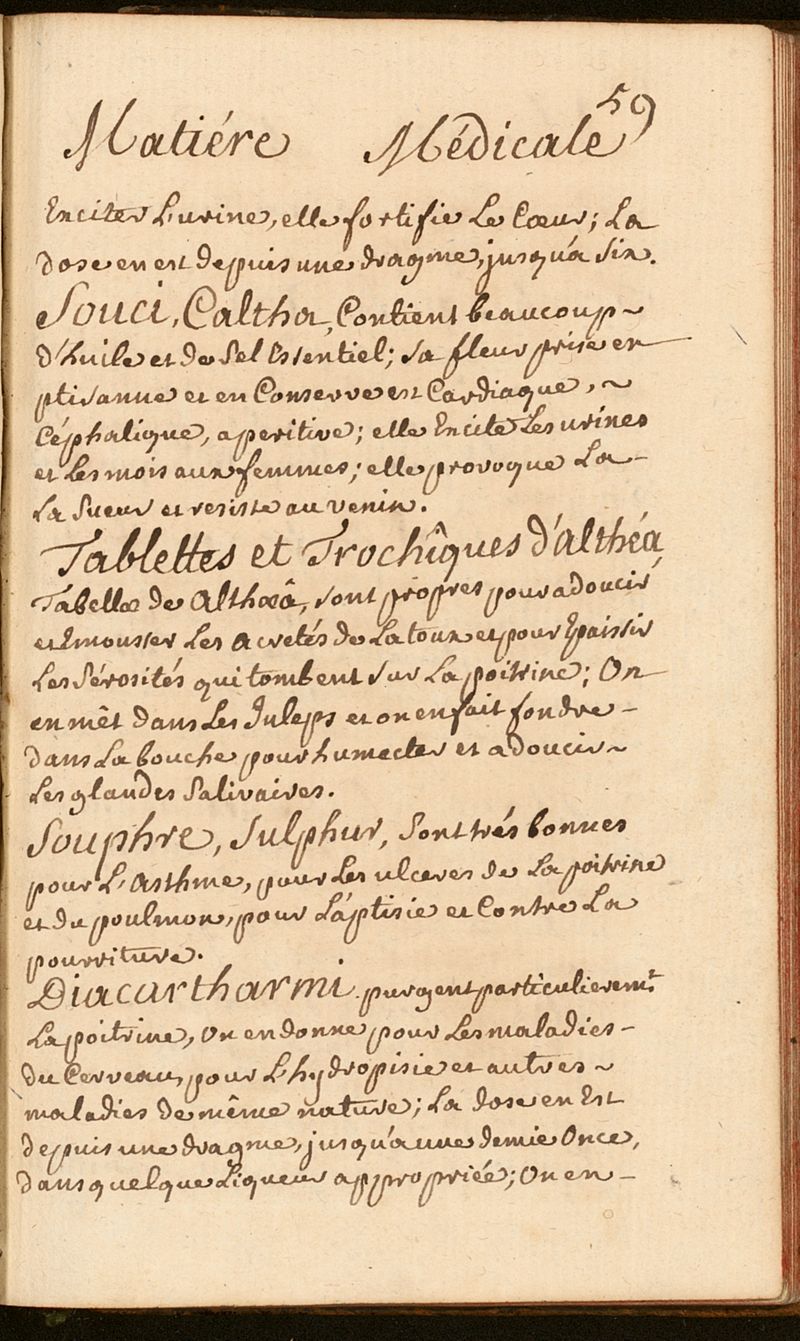 59
Matiére Médicale
Exciter L'urine, elle fortifie Le Cœur; La
dose en est depuis une dragme, jusqu'a Six.
Souci, Caltha, Contient beaucoup ~
d'huile et de Sel Essentiel; sa fleur prise en
ptisanne et en Conserve est Cardiaque, ~
Céphalique, aperitive; elle Excite Les urines
et Les mois aux femmes; elle provoque La -
La Sueur et resiste au venin.
Tablettes et Trochîques d'althéa,
Tabellæ de Althæâ, sont propres pour adoucir
et Emousser Les acretés de La toux et pour Epaissir
Les Sérosités qui tombent sur La poitrine; On
en mêt dans Les Juleps et on en fait fondre -
dans La bouche pour humecter et adoucir ~
Les glandes Salivaires.
Souphre, Sulphur, Sont trés bonnes
pour L'Asthme, pour Les ulceres de La poitrine
et du poulmon, pour La ptisie et Contre La
pourriture.
Diacartharmi purgent particulierem.t
La poitrine, On en donne pour Les maladies -
du Cerveau, pour L'hydropisie et autres ~
maladies de même nature; La dose en Est
depuis une dragme, jusqu'a une demie Once,
dans quelque Liqueur appropriée; On en -